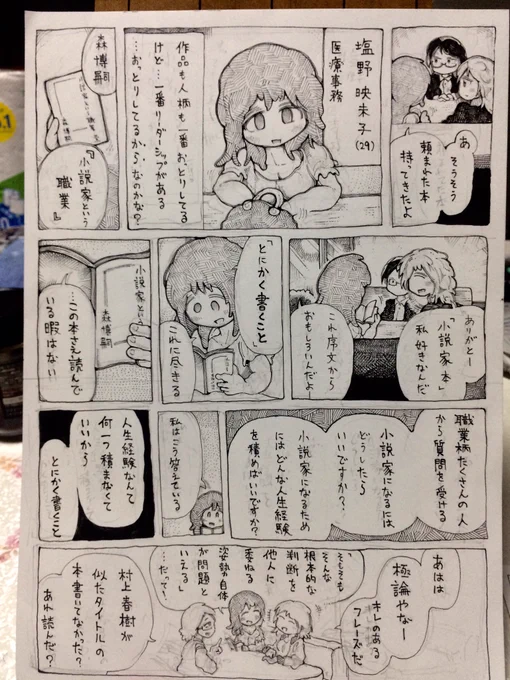 あ
そうそう
頼まれた本
持ってきたよ
塩野 映未子
(29)
医療事務
作品も人柄も一番おっとりしてる
けど…一番リーダーシップがある
…おっとりしてるからなのかな?
森 博嗣
『小説家という
職業』
ありがとー
「小説家本」
私 好きなんだ
これ序文から
おもしろいんだよ
「とにかく書くこと
これに尽きる
小説家という
森博嗣
…この本さえ読んで
いる暇はない
職業柄たくさんの人
から質問を受ける
小説家になるには
どうしたら
いいですか?
小説家になるため
にはどんな人生経験
を積めばいいですか?
私はこう答えている
人生経験なんて
何一つ積まなくて
いいから
とにかく書くこと
あはは
極論やなー
キレのある
フレーズだ
「そもそも
そんな
根本的な
判断を
他人に
委ねる
姿勢自体
が問題と
いえる」
…だって〜
村上春樹が
似たタイトルの
本書いてなかった?
あれ読んだ?